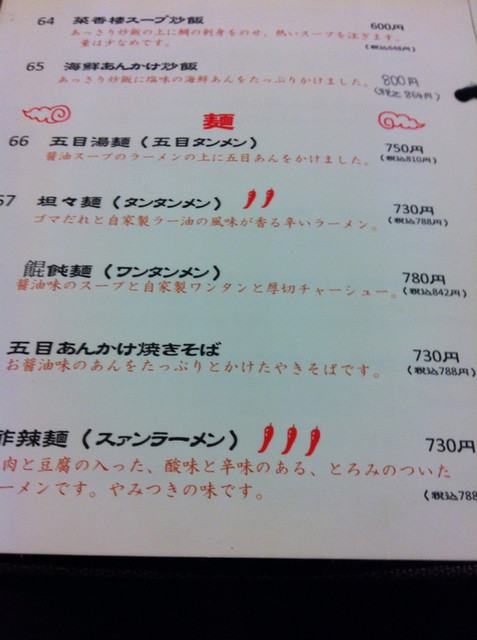 64 菜香楼スープ炒飯 600円
あっさり炒飯の上に鯛の刺身をのせ、熱いスープを注ぎます。
量は少なめです。 (税込648円)
65 海鮮あんかけ炒飯 800円
あっさり炒飯に塩味の海鮮あんをたっぷりかけました。 (税込864円)
麺
66 五目湯麺（五目タンメン） 750円
醤油スープのラーメンの上に五目あんをかけました。 (税込810円)
67 坦々麺（タンタンメン） 730円
ゴマだれと自家製ラー油の風味が香る辛いラーメン。 (税込788円)
餛飩麺（ワンタンメン） 780円
醤油味のスープと自家製ワンタンと厚切チャーシュー。 (税込842円)
五目あんかけ焼きそば 730円
お醤油味のあんをたっぷりとかけたやきそばです。 (税込788円)
酢辣麺（スァンラーメン） 730円
肉と豆腐の入った、酸味と辛味のある、とろみのついた
ーメンです。やみつきの味です。 (税込788